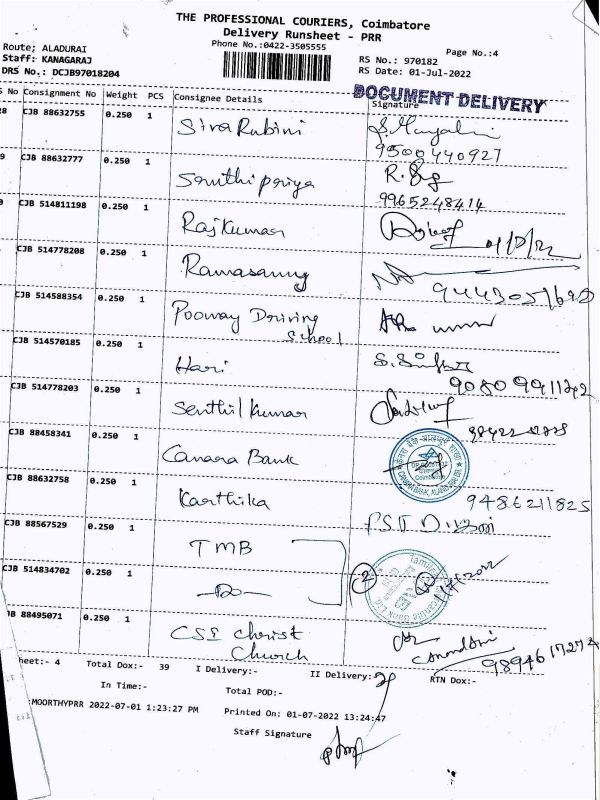 THE PROFESSIONAL COURIERS, Coimbatore
Delivery Runsheet - PRR
Phone No.:0422-3505555
Page No.:4
Route; ALADURAI
Staff: KANAGARAJ
DRS No.: DCJB97018204
RS No.: 970182
RS Date: 01-Jul-2022
DOCUMENT DELIVERY
S No Consignment No Weight PCS Consignee Details Signature
28 CJB 88632755 0.250 1 SivaRubini
9500440927
9 CJB 88632777 0.250 1 Senthi priya
9965248414
0 CJB 514811198 0.250 1 RajKumar
CJB 514778208 0.250 1 Ramasamy
CJB 514588354 0.250 1 Pooway Driving
School
CJB 514570185 0.250 1 Hari
CJB 514778203 0.250 1 Senthil kumar
CJB 88458341 0.250 1 Canara Bank
CJB 88632758 0.250 1 Karthika
9486211825
CJB 88567529 0.250 1 TMB
CJB 514834702 0.250 1 -Do- 2
JB 88495071 0.250 1 CSI christ
Church
heet:- 4 Total Dox:- 39 I Delivery:- II Delivery:- RTN Dox:-
In Time:- Total POD:-
:MOORTHYPRR 2022-07-01 1:23:27 PM Printed On: 01-07-2022 13:24:47
Staff Signature